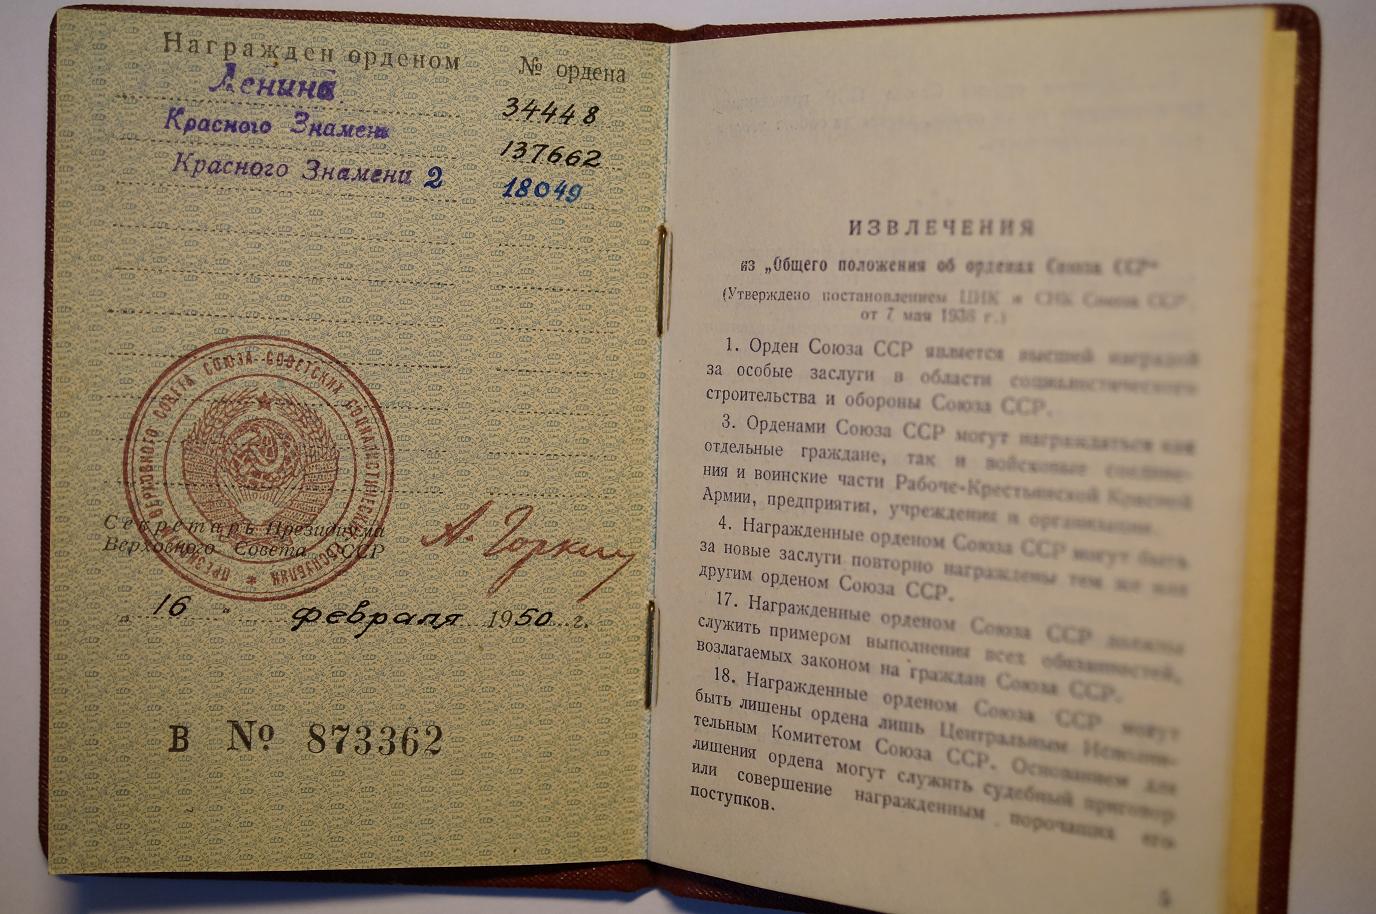 Награжден орденом № ордена
Ленина 34448
Красного Знамени 137662
Красного Знамени 2 18049
ПРЕЗИДИУМ ВЕРХОВНОГО СОВЕТА СОЮЗА СОВЕТСКИХ СОЦИАЛИСТИЧЕСКИХ РЕСПУБЛИК
Секретарь Президиума
Верховного Совета СССР
А. Горкин
„ 16 " февраля 1950 г.
В № 873362
ИЗВЛЕЧЕНИЯ
из „Общего положения об орденах Союза ССР"
(Утверждено постановлением ЦИК и СНК Союза ССР
от 7 мая 1936 г.)
1. Орден Союза ССР является высшей наградой
за особые заслуги в области социалистического
строительства и обороны Союза ССР.
3. Орденами Союза ССР могут награждаться как
отдельные граждане, так и войсковые соедине-
ния и воинские части Рабоче-Крестьянской Красной
Армии, предприятия, учреждения и организации.
4. Награжденные орденом Союза ССР могут быть
за новые заслуги повторно награждены тем же или
другим орденом Союза ССР.
17. Награжденные орденом Союза ССР должны
служить примером выполнения всех обязанностей,
возлагаемых законом на граждан Союза ССР.
18. Награжденные орденом Союза ССР могут
быть лишены ордена лишь Центральным Исполни-
тельным Комитетом Союза ССР. Основанием для
лишения ордена могут служить судебный приговор
или совершение награжденным порочащих его
поступков.
5